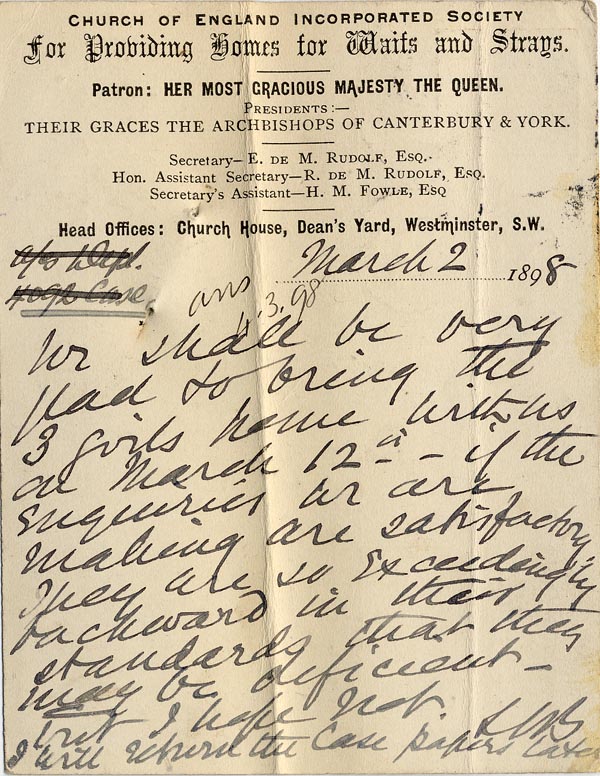 CHURCH OF ENGLAND INCORPORATED SOCIETY
For Providing Homes for Waifs and Strays.
Patron: HER MOST GRACIOUS MAJESTY THE QUEEN.
PRESIDENTS:—
THEIR GRACES THE ARCHBISHOPS OF CANTERBURY & YORK.
Secretary—E. DE M. RUDOLF, ESQ.
Hon. Assistant Secretary—R. DE M. RUDOLF, ESQ.
Secretary's Assistant—H. M. FOWLE, ESQ
Head Offices: Church House, Dean's Yard, Westminster, S.W.
Dept.
March 2 1898
Case
ans
3.98
We shall be very
glad to bring the
3 girls home with us
on March 12th - if the
enquiries we are
making are satisfactory.
They are so exceedingly
backward in their
standards that they
may be deficient -
but I hope not.
I will return the Case papers later